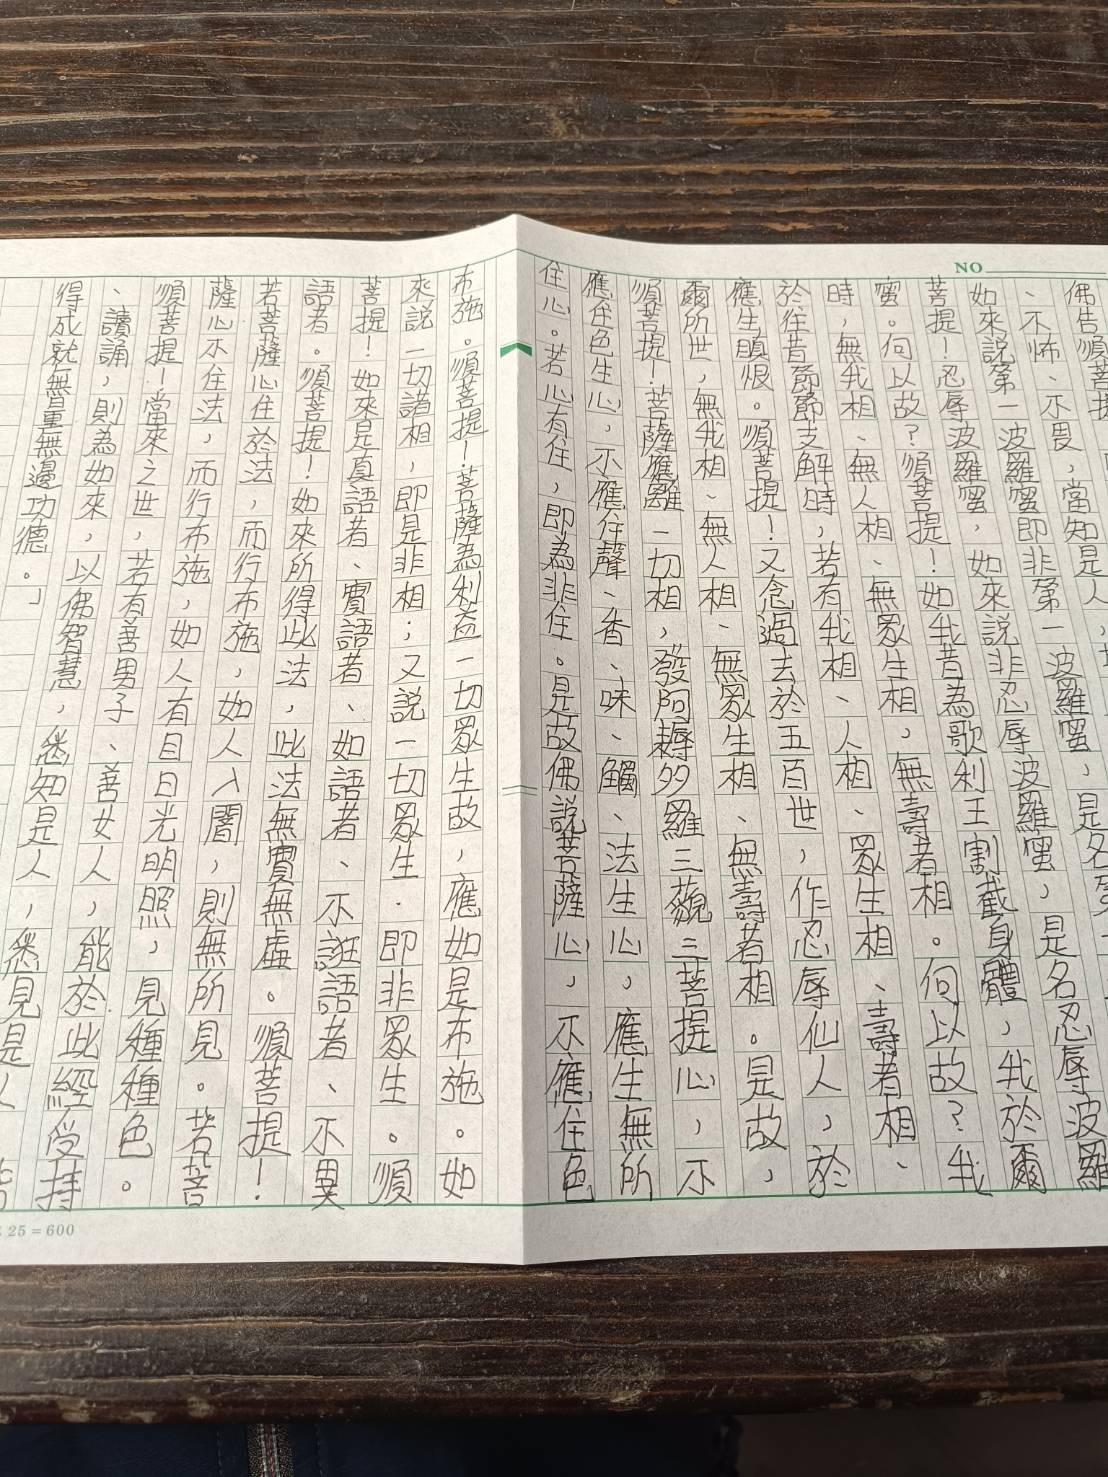 NO
佛告須菩提
、不怖、不畏,當知是人
如來說第一波羅蜜即非第一波羅蜜,是名第一
菩提!忍辱波羅蜜,如來說非忍辱波羅蜜,是名忍辱波羅
蜜。何以故?須菩提!如我昔為歌利王割截身體,我於爾
時,無我相、無人相、無眾生相,無壽者相。何以故?我
於往昔節節支解時,若有我相、人相、眾生相、壽者相、
應生瞋恨。須菩提!又念過去於五百世,作忍辱仙人,於
爾所世,無我相、無人相、無眾生相、無壽者相。是故,
須菩提!菩薩應離一切相,發阿耨多羅三藐三菩提心,不
應住色生心,不應住聲、香、味、觸、法生心,應生無所
住心。若心有住,即為非住。是故佛說菩薩心,不應住色
布施。須菩提!菩薩為利益一切眾生故,應如是布施。如
來說一切諸相,即是非相;又說一切眾生.即非眾生。須
菩提!如來是真語者、實語者、如語者、不誑語者、不異
語者。須菩提!如來所得此法,此法無實無虛。須菩提!
若菩薩心住於法,而行布施,如人入闇,則無所見。若菩
薩心不住法,而行布施,如人有目日光明照,見種種色。
須菩提!當來之世,若有善男子、善女人,能於此經受持
、讀誦,則為如來,以佛智慧,悉知是人,悉見是人
得成就無量無邊功德。」
25=600